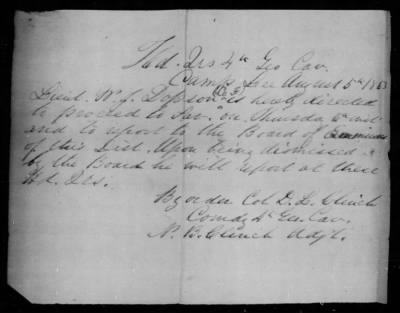 Hd. Qrs 4th Geo Cav.
Camp Lee August 5th 1863
Lieut. W. J. Dopson Co is hereby directed
to proceed to Sav. on Thursday 6th inst
and to report to the Board of
of this Dist. Upon being dismissed
by the Board he will report at these
Hd. Qrs.
By order Col D. L. Clinch
Comdg 4th Geo. Cav.
N. B. Clinch Adjt.